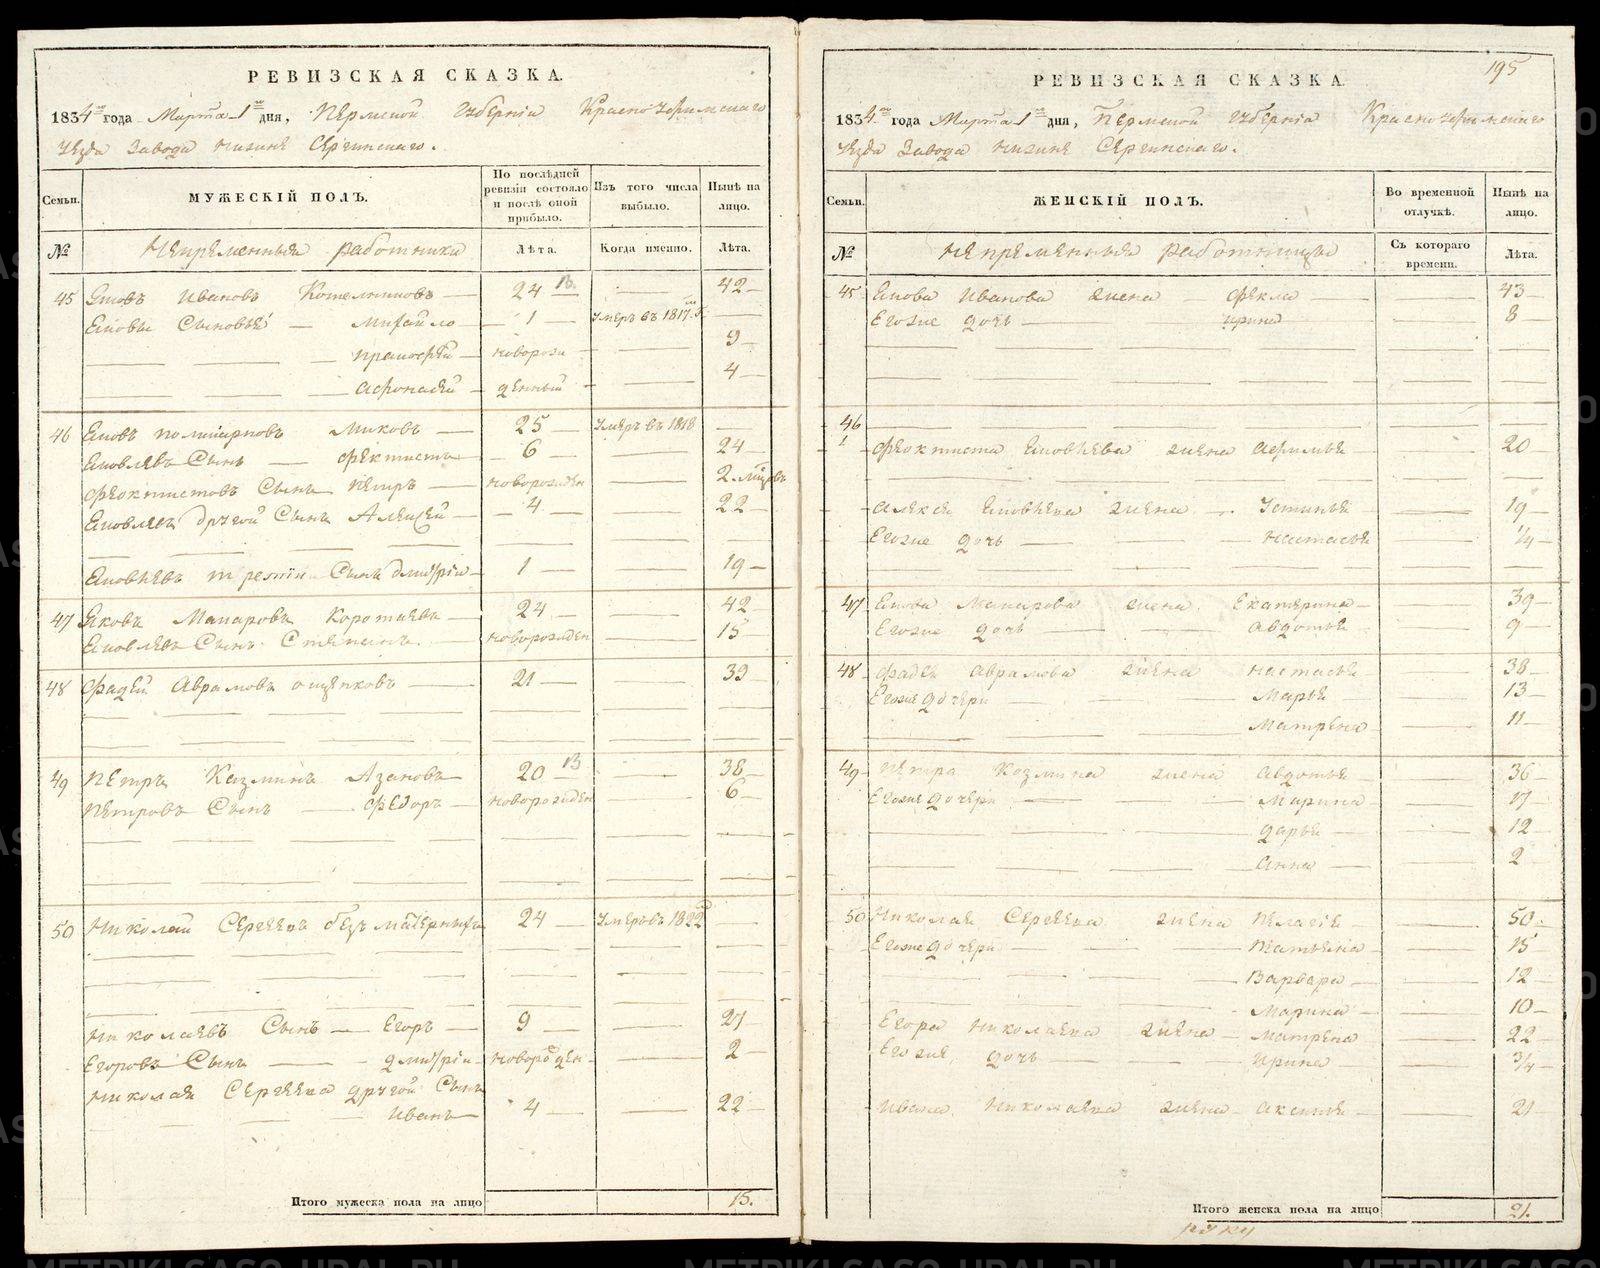 РЕВИЗСКАЯ СКАЗКА.
1834 года Марта 1 дня, Пермской Губернiи Красноуфимскаго
уезда завода Нижне Сергинскаго.
Семьи.
МУЖЕСКIЙ ПОЛЪ.
По послѣдней ревизiи состояло и послѣ оной прибыло.
Изъ того числа выбыло.
Нынѣ на лицо.
№
Непременныя работники
Лѣта.
Когда именно.
Лѣта.
45 Яковъ Ивановъ Котельниковъ 24 42
Яковы Сыновья Михайло 1 умеръ въ 1817
Пракофей новорож 9
Афонасей денный 4
46 Яковъ Поликарповъ 25 умеръ въ 1818
Яковлевъ Сынъ Фектистъ 6 24
Феоктистовъ Сынъ Петръ новорожден 2
Яковлевъ другой Сынъ Алексей 4 22
Яковлевъ третiй Сынъ Дмитрiй 1 19
47 Яковъ Макаровъ 24 42
Яковлевъ Сынъ Степанъ новорожден 15
48 Фадей Аврамовъ 21 39
49 Петръ Казминъ Азановъ 20 38
Петровъ Сынъ Федоръ новорожден 6
50 Николай Сергеевъ 24 умеръ въ 1822
Николаевъ Сынъ Егоръ 9 27
Егоровъ Сынъ Дмитрiй новорожден 2
Николая Сергеева другой Сынъ
Иванъ 4 22
Итого мужеска пола на лицо 15.
195
РЕВИЗСКАЯ СКАЗКА
1834 года Марта 1 дня, Пермской Губернiи Красноуфимскаго
уезда завода Нижне Сергинскаго.
Семьи.
ЖЕНСКIЙ ПОЛЪ.
Во временной отлучкѣ.
Нынѣ на лицо.
№
Непременныя работницы
Съ котораго времени.
Лѣта.
45 Якова Иванова жена Фекла 43
Егоже дочь Ирина 8
46
Феоктиста Яковлева жена Афимья 20
Алексея Яковлева жена Устинья 19
Егоже дочь Настасья 1/4
47 Якова Макарова жена Екатерина 39
Егоже дочь Авдотья 9
48 Фадея Аврамова жена Настасья 38
Егоже дочери Марья 13
Матрена 11
49 Петра Козмина жена Авдотья 36
Егоже дочери Марина 17
Дарья 12
Анна 2
50 Николая Сергеева жена Пелагiя 50
Егоже дочери Татьяна 15
Варвара 12
Марина 10
Егора Николаева жена Матрена 22
Егоже дочь Ирина 3/4
Ивана Николаева жена Аксинья 21
Итого женска пола на лицо 21.
METRIKI.GASO-URAL.RU